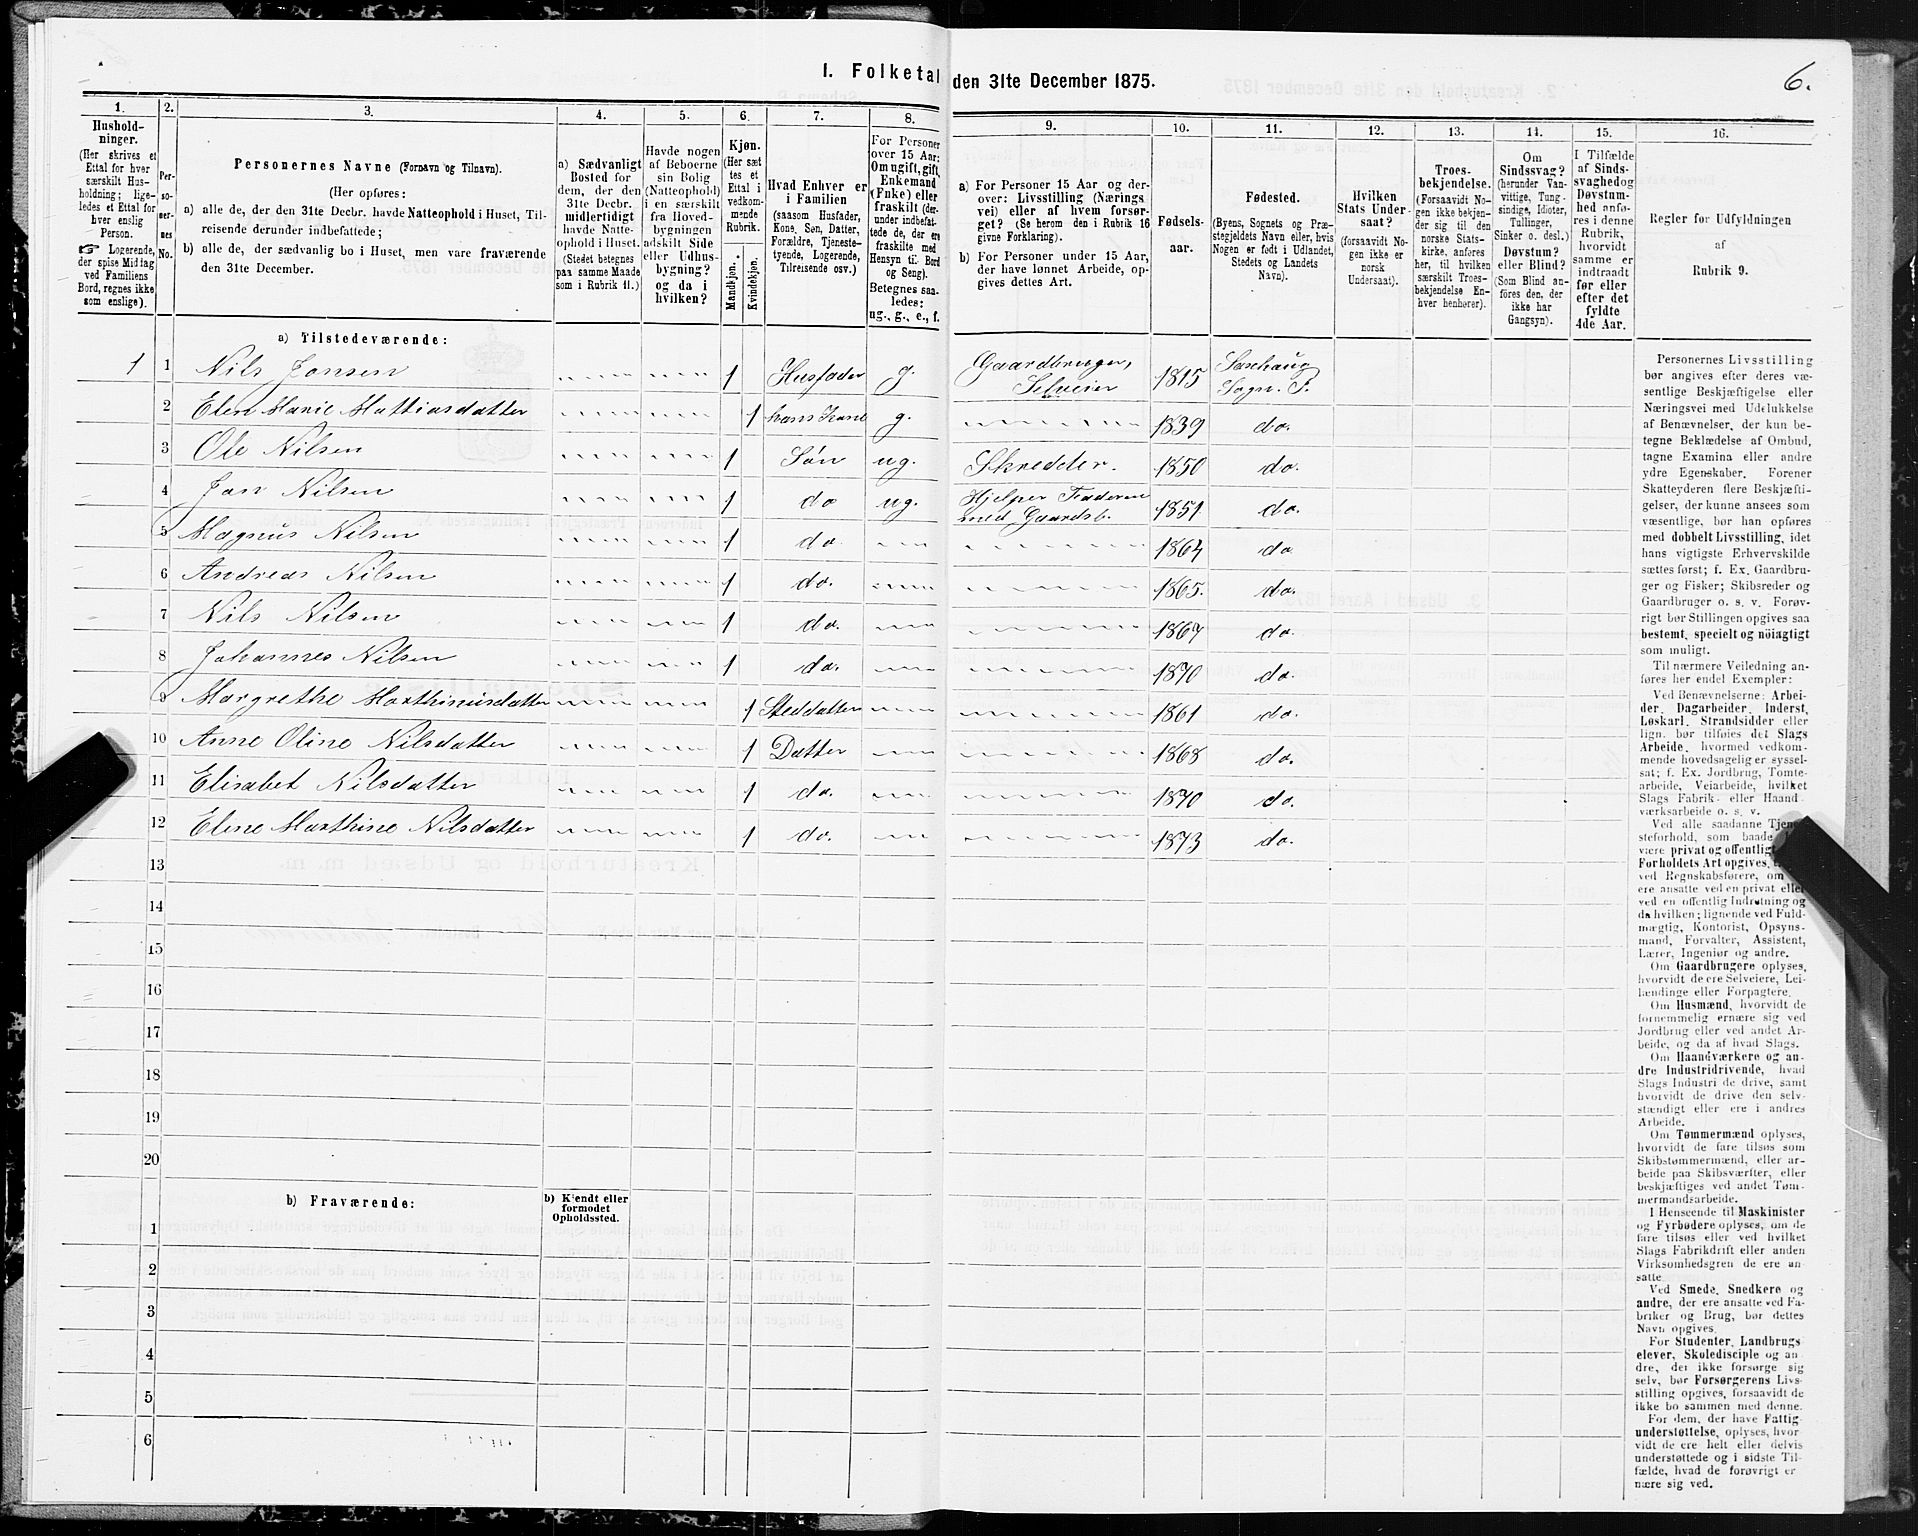 I. Folketal den 31te December 1875.
6.
1.
2.
3.
4.
5.
6.
7.
8.
9.
10.
11.
12.
13.
14.
15.
16.
Hushold-
ninger.
(Her skrives et
Ettal for hver
særskilt Hus-
holdning; lige-
ledes et Ettal for
hver enslig
Person.
☞ Logerende,
der spise Middag
ved Familiens
Bord, regnes ikke
som enslige).
Per-
so-
ner-
nes
No.
Personernes Navne (Fornavn og Tilnavn).
(Her opføres:
a) alle de, der den 31te Decbr. havde Natteophold i Huset, Til-
reisende derunder indbefattede;
b) alle de, der sædvanlig bo i Huset, men vare fraværende
den 31te December.
a) Sædvanligt
Bosted for
dem, der den
31te Decbr.
midlertidigt
havde Natte-
ophold i Huset.
(Stedet betegnes
paa samme Maade
som i Rubrik 11.)
Havde nogen
af Beboerne
sin Bolig
(Natteophold)
i en særskilt
fra Hoved-
bygningen
adskilt Side
eller Udhus-
bygning?
og da i
hvilken?
Kjøn.
(Her sæt-
tes et
Ettal i
vedkom-
mende
Rubrik.
Mandkjøn.
Kvindekjøn.
Hvad Enhver er
i Familien
(saasom Husfader,
Kone, Søn, Datter,
Forældre, Tjeneste-
tyende, Logerende,
Tilreisende osv.)
For Personer
over 15 Aar:
Om ugift, gift,
Enkemand
(Enke) eller
fraskilt (der-
under indbefat-
tede de, der ere
fraskilte med
Hensyn til Bord
og Seng).
Betegnes saa-
ledes:
ug., g., e., f.
a) For Personer 15 Aar og der-
over: Livsstilling (Nærings
vei) eller af hvem forsør-
get? (Se herom den i Rubrik 16
givne Forklaring).
b) For Personer under 15 Aar,
der have lønnet Arbeide, op-
gives dettes Art.
Fødsels-
aar.
Fødested.
(Byens, Sognets og Præ-
stegjeldets Navn eller, hvis
Nogen er født i Udlandet,
Stedets og Landets
Navn).
Hvilken
Stats Under-
saat?
(forsaavidt No-
gen ikke er
norsk
Undersaat).
Troes-
bekjendelse.
(Forsaavidt No-
gen ikke bekjen-
der sig til den
norske Stats-
kirke, anføres
her, til hvilken
særskilt Troes-
bekjendelse En-
hver henhører).
Om
Sindssvag?
(herunder Van-
vittige, Tung-
sindige, Idioter,
Tullinger,
Sinker o. desl.)
Døvstum?
eller Blind?
(Som Blind an-
føres den, der
ikke har
Gangsyn).
I Tilfælde
af Sinds-
svaghed og
Døvstum-
hed anfø-
res i denne
Rubrik,
hvorvidt
samme er
indtraadt
før eller
efter det
fyldte
4de Aar.
Regler før Udfyldningen
af
Rubrik 9.
a) Tilstedeværende:
1 1 Nils Jonsen 1 Husfader g. Gaardbruger, Selveier 1815 Sogn. P.
2 Elen Marie Mathiasdatter 1 hans Kone g. 1839 do.
3 Ole Nilsen 1 Søn ug. Skredder. 1850 do.
4 Jon Nilsen 1 do ug. Hjelper Faderen med Gaardsb. 1851 do.
5 Magnus Nilsen 1 do. 1864 do
6 Andreas Nilsen 1 do. 1865. do.
7 Nils Nilsen 1 do. 1867 do.
8 Johannes Nilsen 1 do. 1870 do.
9 Margrethe Marthinusdatter 1 Steddatter 1861 do.
10 Anne Oline Nilsdatter 1 Datter 1868 do.
11 Elisabet Nilsdatter 1 do. 1870 do.
12 Eline Marthine Nilsdatter 1 do. 1873 do.
13
14
15
16
17
18
19
20
b) Fraværende:
b) Kjendt eller
formodet
Opholdssted.
1
2
3
4
5
6
Personernes Livsstilling
bør angives efter deres væ-
sentlige Beskjæftigelse eller
Næringsvei med Udelukkelse
af Benævnelser, der kun be-
tegne Beklædelse af Ombud,
tagne Examina eller andre
ydre Egenskaber. Forener
Skatteyderen flere Beskjæfti-
gelser, der kunne ansees som
væsentlige, bør han opføres
med dobbelt Livsstilling, idet
hans vigtigste Erhvervskilde
sættes først; f. Ex. Gaardbru-
ger og Fisker; Skibsreder og
Gaardbruger o. s. v. Forøv-
rigt bør Stillingen opgives saa
bestemt, specielt og nøiagtigt
som muligt.
Til nærmere Veiledning an-
føres her endel Exempler:
Ved Benævnelserne: Arbei-
der, Dagarbeider, Inderst,
Løskarl, Strandsidder eller
lign. bør tilføies det Slags
Arbeide, hvormed vedkom-
mende hovedsagelig er syssel-
sat; f. Ex. Jordbrug, Tomte-
arbeide, Veiarbeide, hvilket
Slags Fabrik- eller Haand-
værksarbeide o. s. v.
Ved alle saadanne Tjene-
steforhold, som baade
være privat og offentligt,
Forholdets Art opgives,
ved Regnskabsførere, om
ere ansatte ved en privat eller
ved en offentlig Indretning og
da hvilken; lignende ved Fuld-
mægtig, Kontorist, Opsyns-
mand, Forvalter, Assistent,
Lærer, Ingeniør og andre.
Om Gaardbrugere oplyses,
hvorvidt de ere Selveiere, Lei-
lændinge eller Forpagtere.
Om Husmænd, hvorvidt de
fornemmelig ernære sig ved
Jordbrug eller ved andet Ar-
beide, og da af hvad Slags.
Om Haandværkere og an-
dre Industridrivende, hvad
Slags Industri de drive, samt
hvorvidt de drive den selv-
stændigt eller ere i andres
Arbeide.
Om Tømmermænd oplyses,
hvorvidt de fare tilsøs som
Skibstømmermænd, eller ar-
beide paa Skibsværfter, eller
beskjæftiges ved andet Tøm-
mermandsarbeide.
I Henseende til Maskinister
og Fyrbødere oplyses, om de
fare tilsøs eller ved hvilket
Slags Fabrikdrift eller anden
Virksomhedsgren de ere an-
satte.
Ved Smede, Snedkere og
andre, der ere ansatte ved Fa-
briker og Brug, bør dettes
Navn opgives.
For Studenter, Landbrugs
elever, Skoledisciple og an-
dre, der ikke forsørge sig
selv, bør Forsørgerens Livs-
stilling opgives, forsaavidt de
ikke bo sammen med denne.
For dem, der have Fattig-
understøttelse, oplyses, hvor
vidt de ere helt eller delvis
understøttede og i sidste Til-
fælde, hvad de forøvrigt er
nære sig ved.